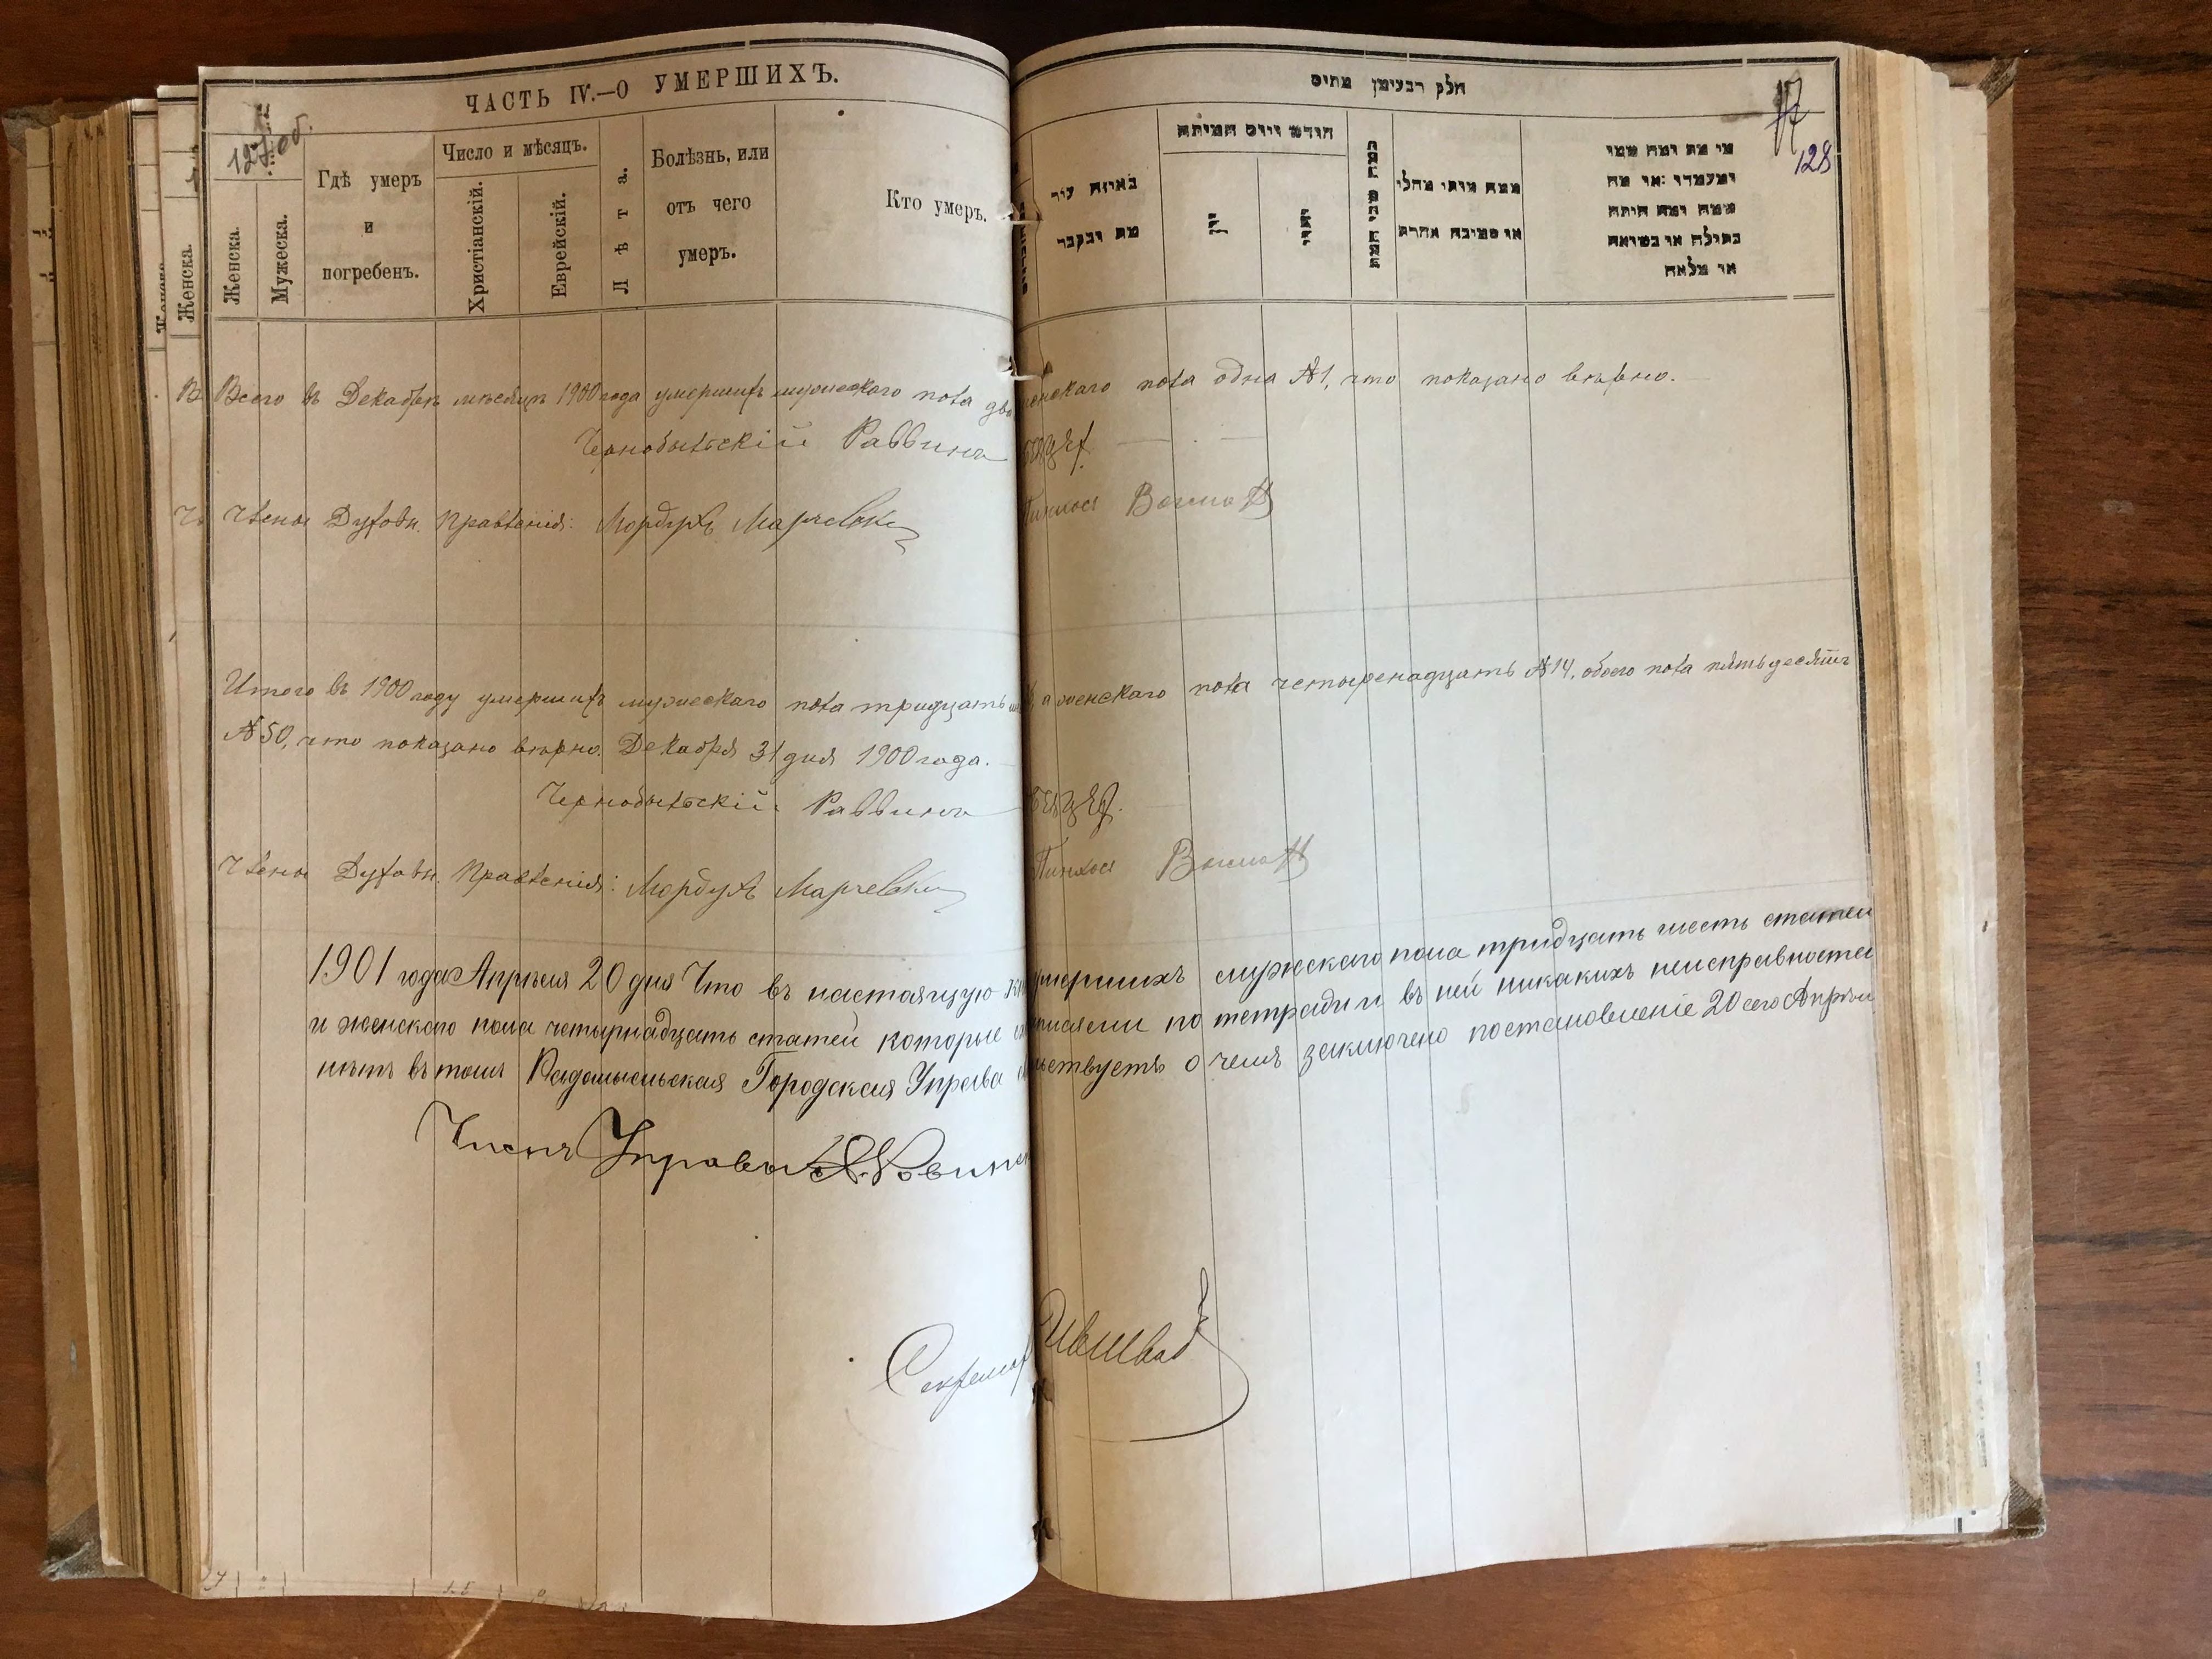 ЧАСТЬ IV.—О УМЕРШИХЪ.
127 об.
Женска.
Мужеска.
Гдѣ умеръ и погребенъ.
Число и мѣсяцъ.
Христіанскій.
Еврейскій.
Лѣта.
Болѣзнь, или отъ чего умеръ.
Кто умеръ.
חלק רבעימן מתים
17
128
באיזה עיר
מת ונקבר
חודש ויום המיתה
ממה מיתי מחלי
או סמיבה אחרת
מי מת ומה שמו
ומעמדו או מה
שמה ומה היתה
בתולה או נשואה
או מלאה
Всего въ Декабрѣ мѣсяцѣ 1900 года умершихъ мужескаго пола два женскаго пола одна №1, что показано вѣрно.
Чернобыльскій Раввинъ
Члены Духовн. Правленія: Мордухъ Марчевски Пинхос
Итого въ 1900 году умершихъ мужескаго пола тридцать а женскаго пола четыренадцать №14, обоего пола пятьдесятъ
№50, что показано вѣрно. Декабря 31 дня 1900 года.
Чернобыльскій Раввинъ
Члены Духовн. Правленія: Мордухъ Марчевски Пинхос
1901 года Апрѣля 20 дня Что въ настоящую умершихъ мужескаго пола тридцать шесть статей
и женскаго пола четырнадцать статей которые по тетради и въ ней никакихъ неисправностей
нѣтъ въ томъ Радомысльская Городская Управа о чемъ заключено постановленіе 20 сего Апрѣля
Членъ Управы
Секретарь